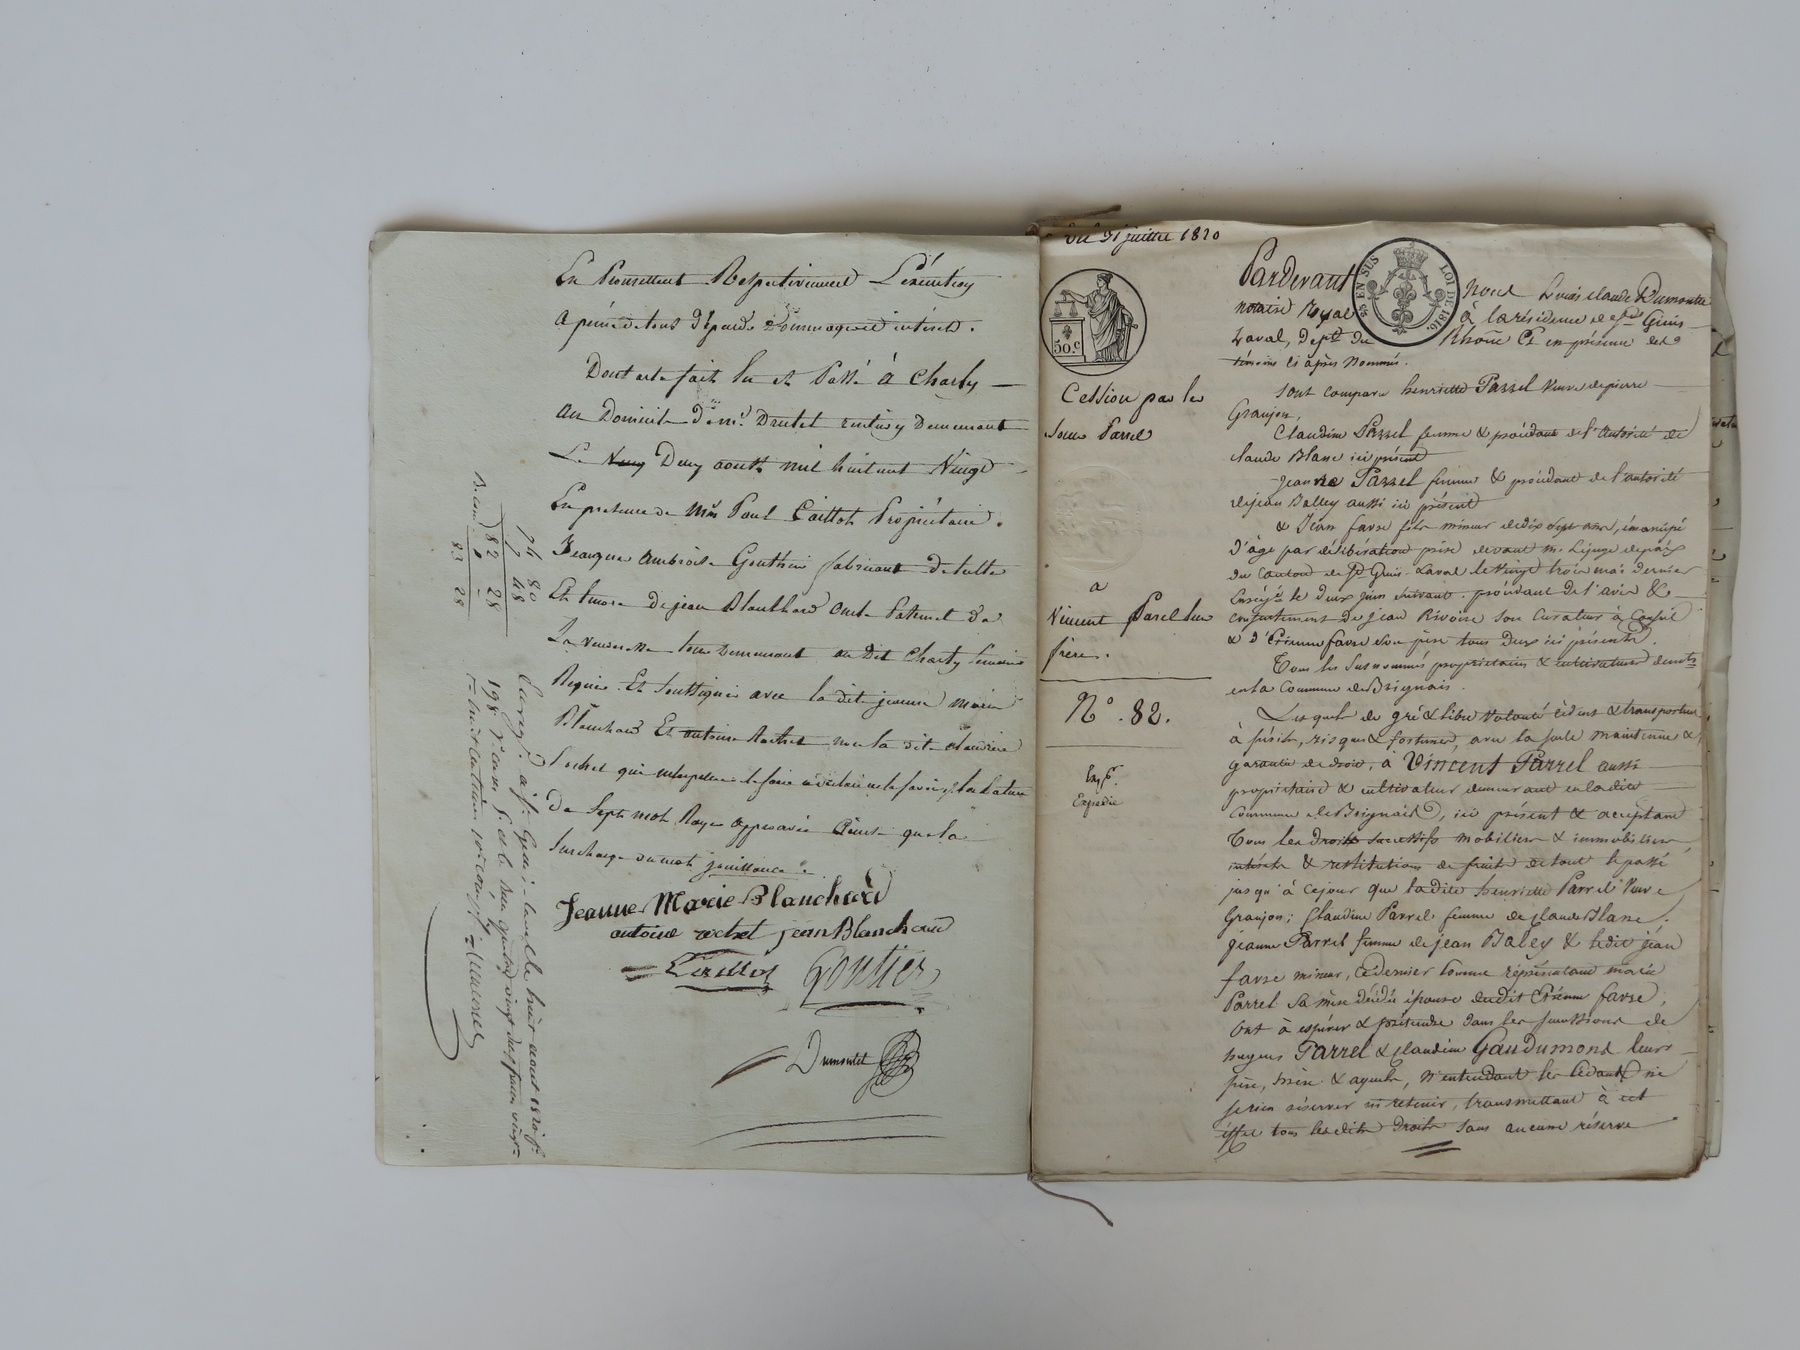 En Promettent Respectivement L'exécution
a peine de tous dépends dommages et intérêts.
Dont acte fait lu et Passé à Charly
au Domicile de mr. Drutel rentier y Demeurant
Le Deux aoust mil huit cent Vingt
En presence de Mrs Paul Caillot Propriétaire.
Jeacque Ambroise Gouthier fabricant de tulle
Et encore de jean Blanchard oncle Paternel de
La venderesse tous Demeurant au Dit Charly temoins
Requis Et Soussignés avec la dite jeanne Marie
Blanchard Et antoine Rochet non la dite claudine
Rochet qui interpellée de le faire a déclaré ne le savoir
De Sept mots Rayés approuvés Ainsi que la
Surcharge du mot jouissance.
Jeanne Marie Blanchard
antoine rochet jean Blanchard
Caillot Goutier
Dumontet
74 80
7 48
82 28
1
83 28
Enregé. à St. Genis-laval le huit aout 1820 fo.
198
Du 31 juillet 1820
50.c
Cession par les
Sœurs Parrel
a
Vincent Parrel leur
frère.
No. 82.
Exp.
Expédié
Pardevant Nous Louis claude Dumontet
notaire Royal à la résidence de St Genis-
Laval, dept. du Rhône Et en présence des
témoins ci après Nommés.
EN SUS LOI DE 1816.
Sont comparu henriette Parrel Veuve de pierre
Granjon,
Claudine Parrel femme & procédant de l'Autorité de
claude Blanc ici présent
Jeanne Parrel femme & procédant de l'autorité
de jean Balley aussi ici présent
& Jean favre fils mineur de dix sept ans, émancipé
d'âge par délibération prise devant m. le juge de paix
du canton de St. Genis-Laval le Vingt trois mai dernier
Enregé. le deux juin suivant, procédant de l'avis &
consentement de jean Rivoire son curateur à conseil
& d'Etienne favre son père tous deux ici présents.
Tous les susnommés propriétaires & cultivateurs demts
en la Commune de Brignais.
Lesquels de gré & libre Volonté cèdent & transportent
à périls, risques & fortunes, avec la seule maintenue &
garantie de droit, à Vincent Parrel aussi
propriétaire & cultivateur demeurant en la dite
Commune de Brignais, ici présent & acceptant
Tous les droits successifs mobiliers & immobiliers
intérêts & restitutions de fruits de tout le passé
jusqu'à ce jour que la dite henriette Parrel Veuve
Granjon; Claudine Parrel femme de claude Blanc.
jeanne Parrel femme de jean Baley & le dit jean
favre mineur, ce dernier comme représentant marie
Parrel sa mère décédée épouse du dit Etienne favre,
Ont à espérer & prétendre dans les successions de
hugues Parrel & claudine Gaudumond leurs
père, mère & ayeuls, N'entendant les cédants ne
se rien réserver ni retenir, transmettant à cet
effet tous les dits droits sans aucune réserve